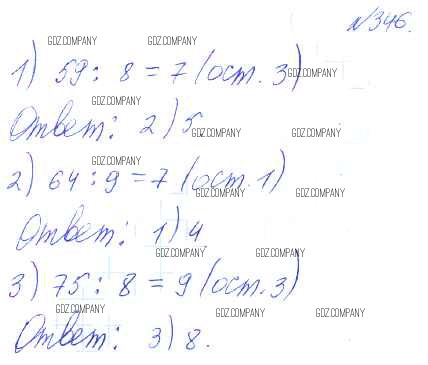 №346.
GDZ.COMPANY GDZ.COMPANY
1) 59 : 8 = 7 (ост. 3)
GDZ.COMPANY
GDZ.COMPANY
Ответ: 2) 5
GDZ.COMPANY GDZ.COMPANY
GDZ.COMPANY
2) 64 : 9 = 7 (ост. 1)
GDZ.COMPANY GDZ.COMPANY
Ответ: 1) 4
GDZ.COMPANY GDZ.COMPANY
3) 75 : 8 = 9 (ост. 3)
GDZ.COMPANY GDZ.COMPANY GDZ.COMPANY
Ответ: 3) 8.